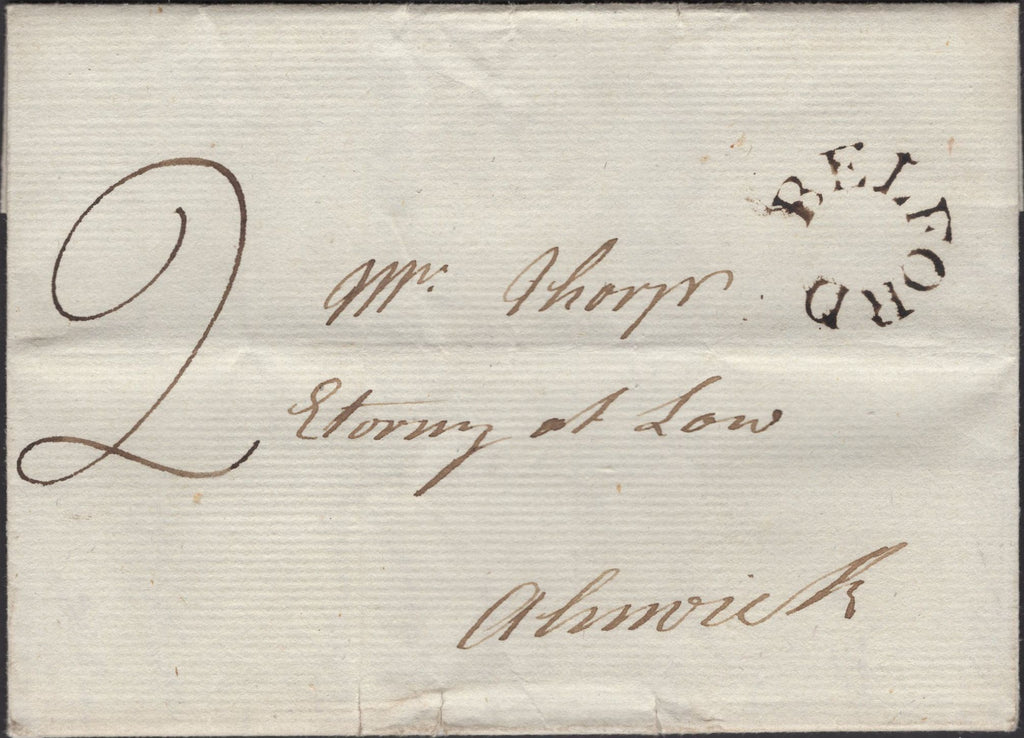 BELFORD
2
Mr. Thorp
Etorny at Low
Alnwick